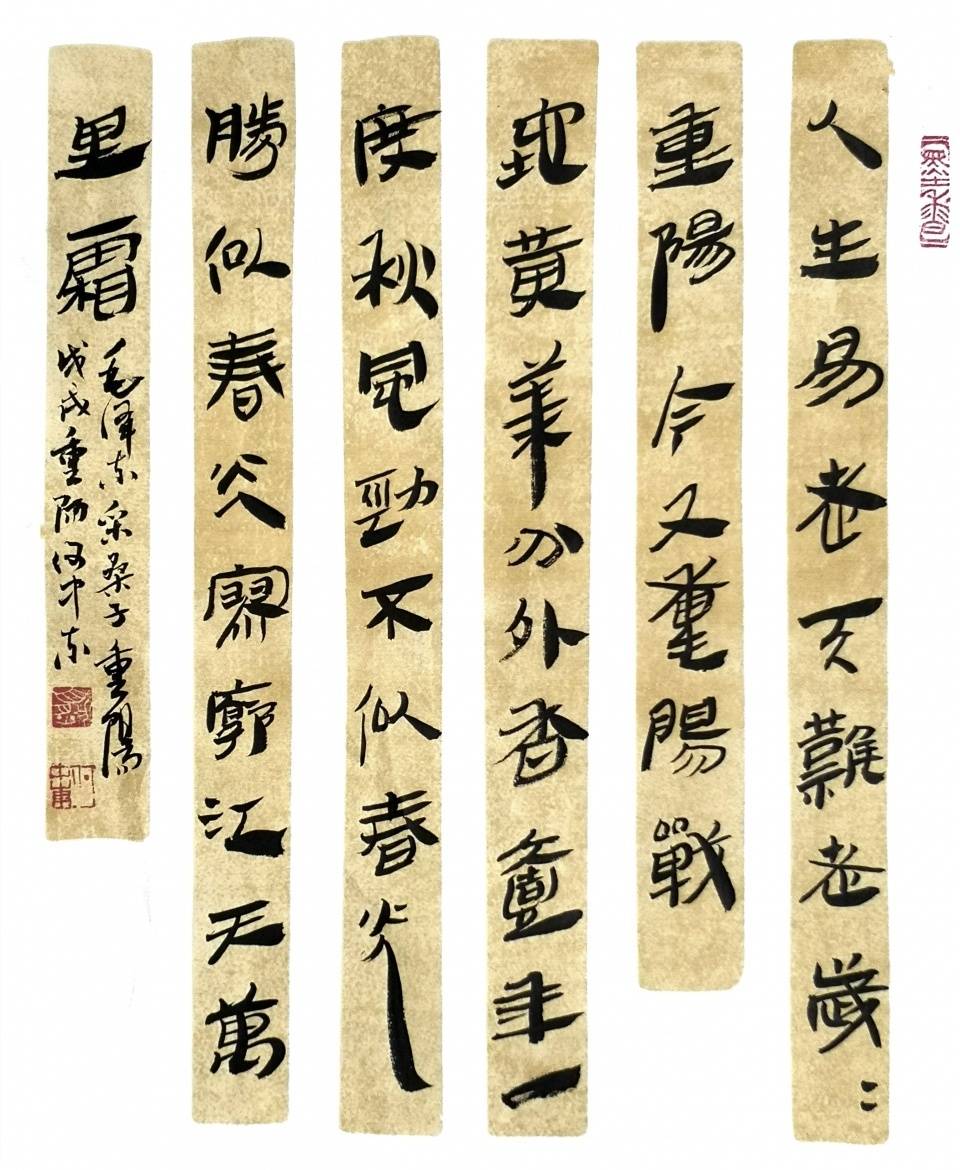 人生易老天難老歲〻
重陽今又重陽戰
地黃華分外香壹年一
度秋風勁不似春光
勝似春光寥廓江天萬
里霜
毛澤东采桑子重陽
戊戌重陽何中东
何中東